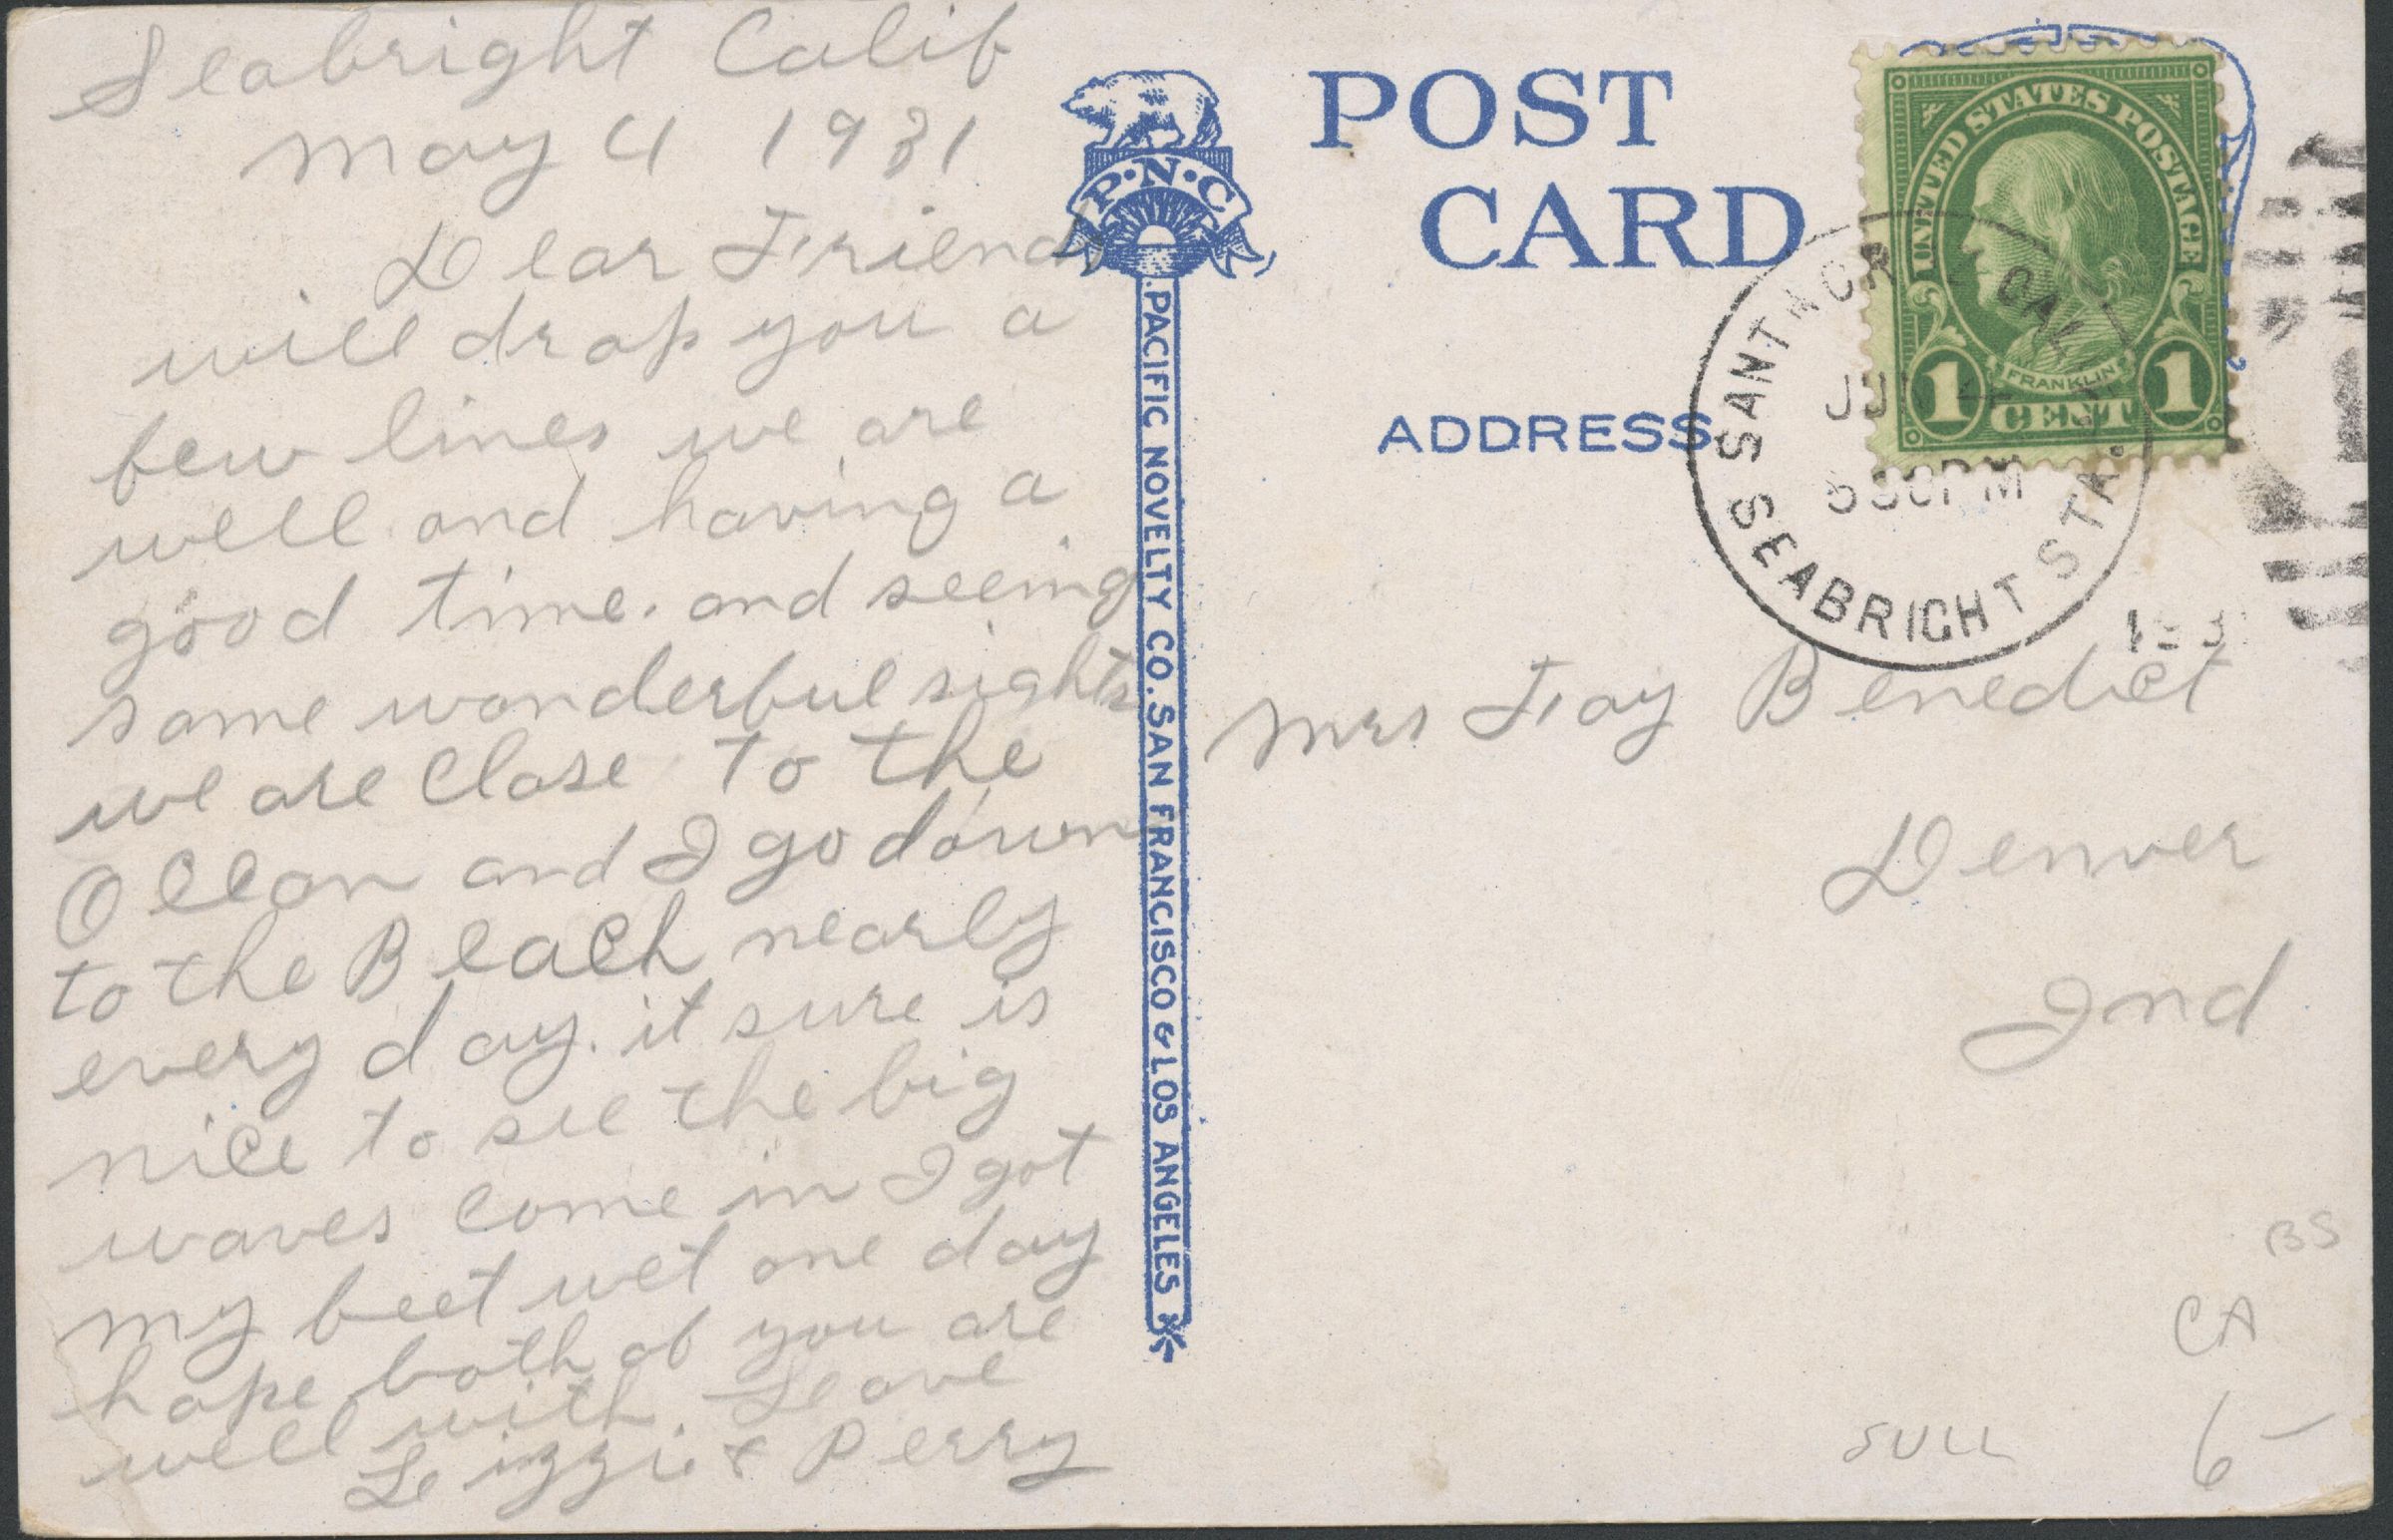 Seabright Calif
May 4 1931
Dear Friend
will drop you a
few lines we are
well and having a
good time. and seeing
some wonderful sights
we are Close to the
Ocean and I go down
to the Beach nearly
every day. it sure is
nice to see the big
waves come in I got
my feet wet one day
hope both of you are
well with Love
Lizzie & Perry
P·N·C
PACIFIC NOVELTY CO. SAN FRANCISCO & LOS ANGELES
POST
CARD
ADDRESS
UNITED STATES POSTAGE
FRANKLIN
1 CENT 1
CAL.
SEABRIGHT STA.
PM
Mrs Fay Benedict
Denver
Ind
BS
CA
SULL
6-